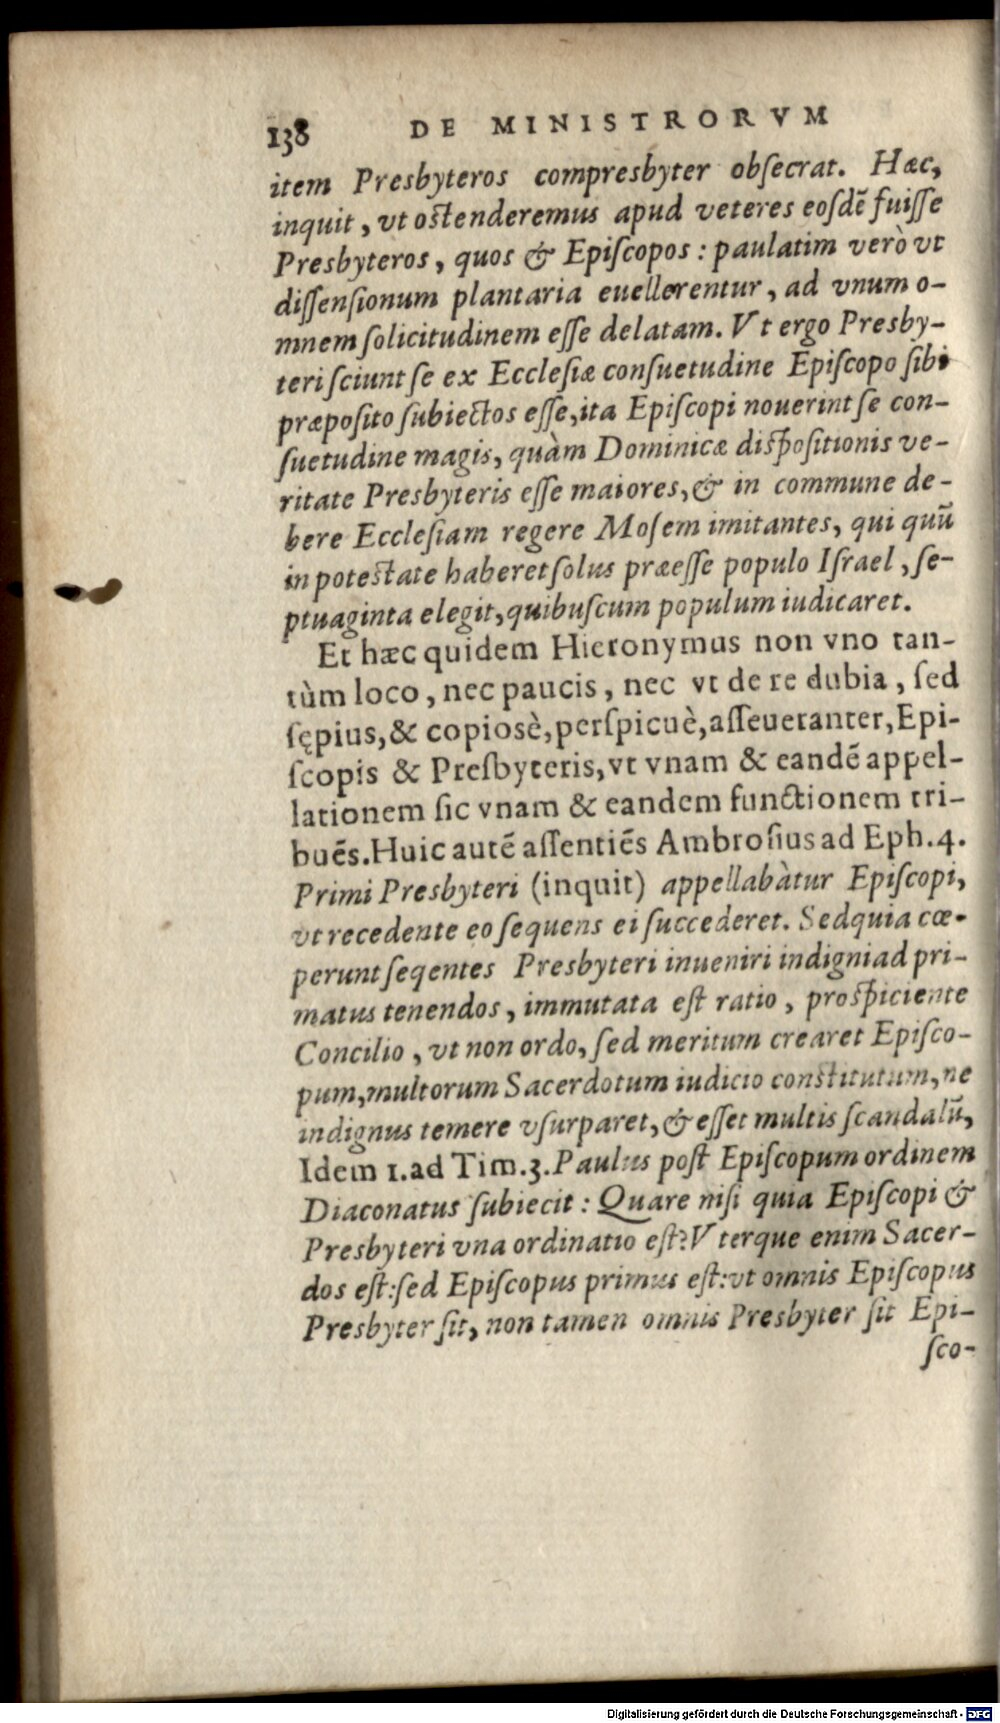 138 DE MINISTRORVM
item Presbyteros compresbyter obſecrat. Hæc,
inquit, vt oſtenderemus apud veteres eoſdē fuiſſe
Presbyteros, quos & Epiſcopos: paulatim verò vt
diſſenſionum plantaria euellerentur, ad vnum o-
mnem ſolicitudinem eſſe delatam. Vt ergo Presby-
teri ſciunt ſe ex Eccleſiæ conſuetudine Epiſcopo ſibi
præpoſito ſubiectos eſſe, ita Epiſcopi nouerint ſe con-
ſuetudine magis, quàm Dominicæ diſpoſitionis ve-
ritate Presbyteris eſſe maiores, & in commune de-
bere Eccleſiam regere Moſem imitantes, qui quū
in poteſtate haberet ſolus præeſſe populo Iſrael, ſe-
ptuaginta elegit, quibuſcum populum iudicaret.
Et hæc quidem Hieronymus non vno tan-
tùm loco, nec paucis, nec vt de re dubia, ſed
ſępius, & copiosè, perſpicuè, aſſeueranter, Epi-
ſcopis & Preſbyteris, vt vnam & eandē appel-
lationem ſic vnam & eandem functionem tri-
buēs. Huic autē aſſentiēs Ambroſius ad Eph. 4.
Primi Presbyteri (inquit) appellabàtur Epiſcopi,
vt recedente eo ſequens ei ſuccederet. Sed quia cœ-
perunt ſeqentes Presbyteri inueniri indigni ad pri-
matus tenendos, immutata eſt ratio, proſpiciente
Concilio, vt non ordo, ſed meritum crearet Epiſco-
pum, multorum Sacerdotum iudicio conſtitutum, ne
indignus temere vſurparet, & eſſet multis ſcandalū,
Idem 1. ad Tim. 3. Paulus poſt Epiſcopum ordinem
Diaconatus ſubiecit: Quare niſi quia Epiſcopi &
Presbyteri vna ordinatio eſt? Vterque enim Sacer-
dos eſt: ſed Epiſcopus primus eſt: vt omnis Epiſcopus
Presbyter ſit, non tamen omnis Presbyter ſit Epi-
ſco-
Digitalisierung gefördert durch die Deutsche Forschungsgemeinschaft - DFG